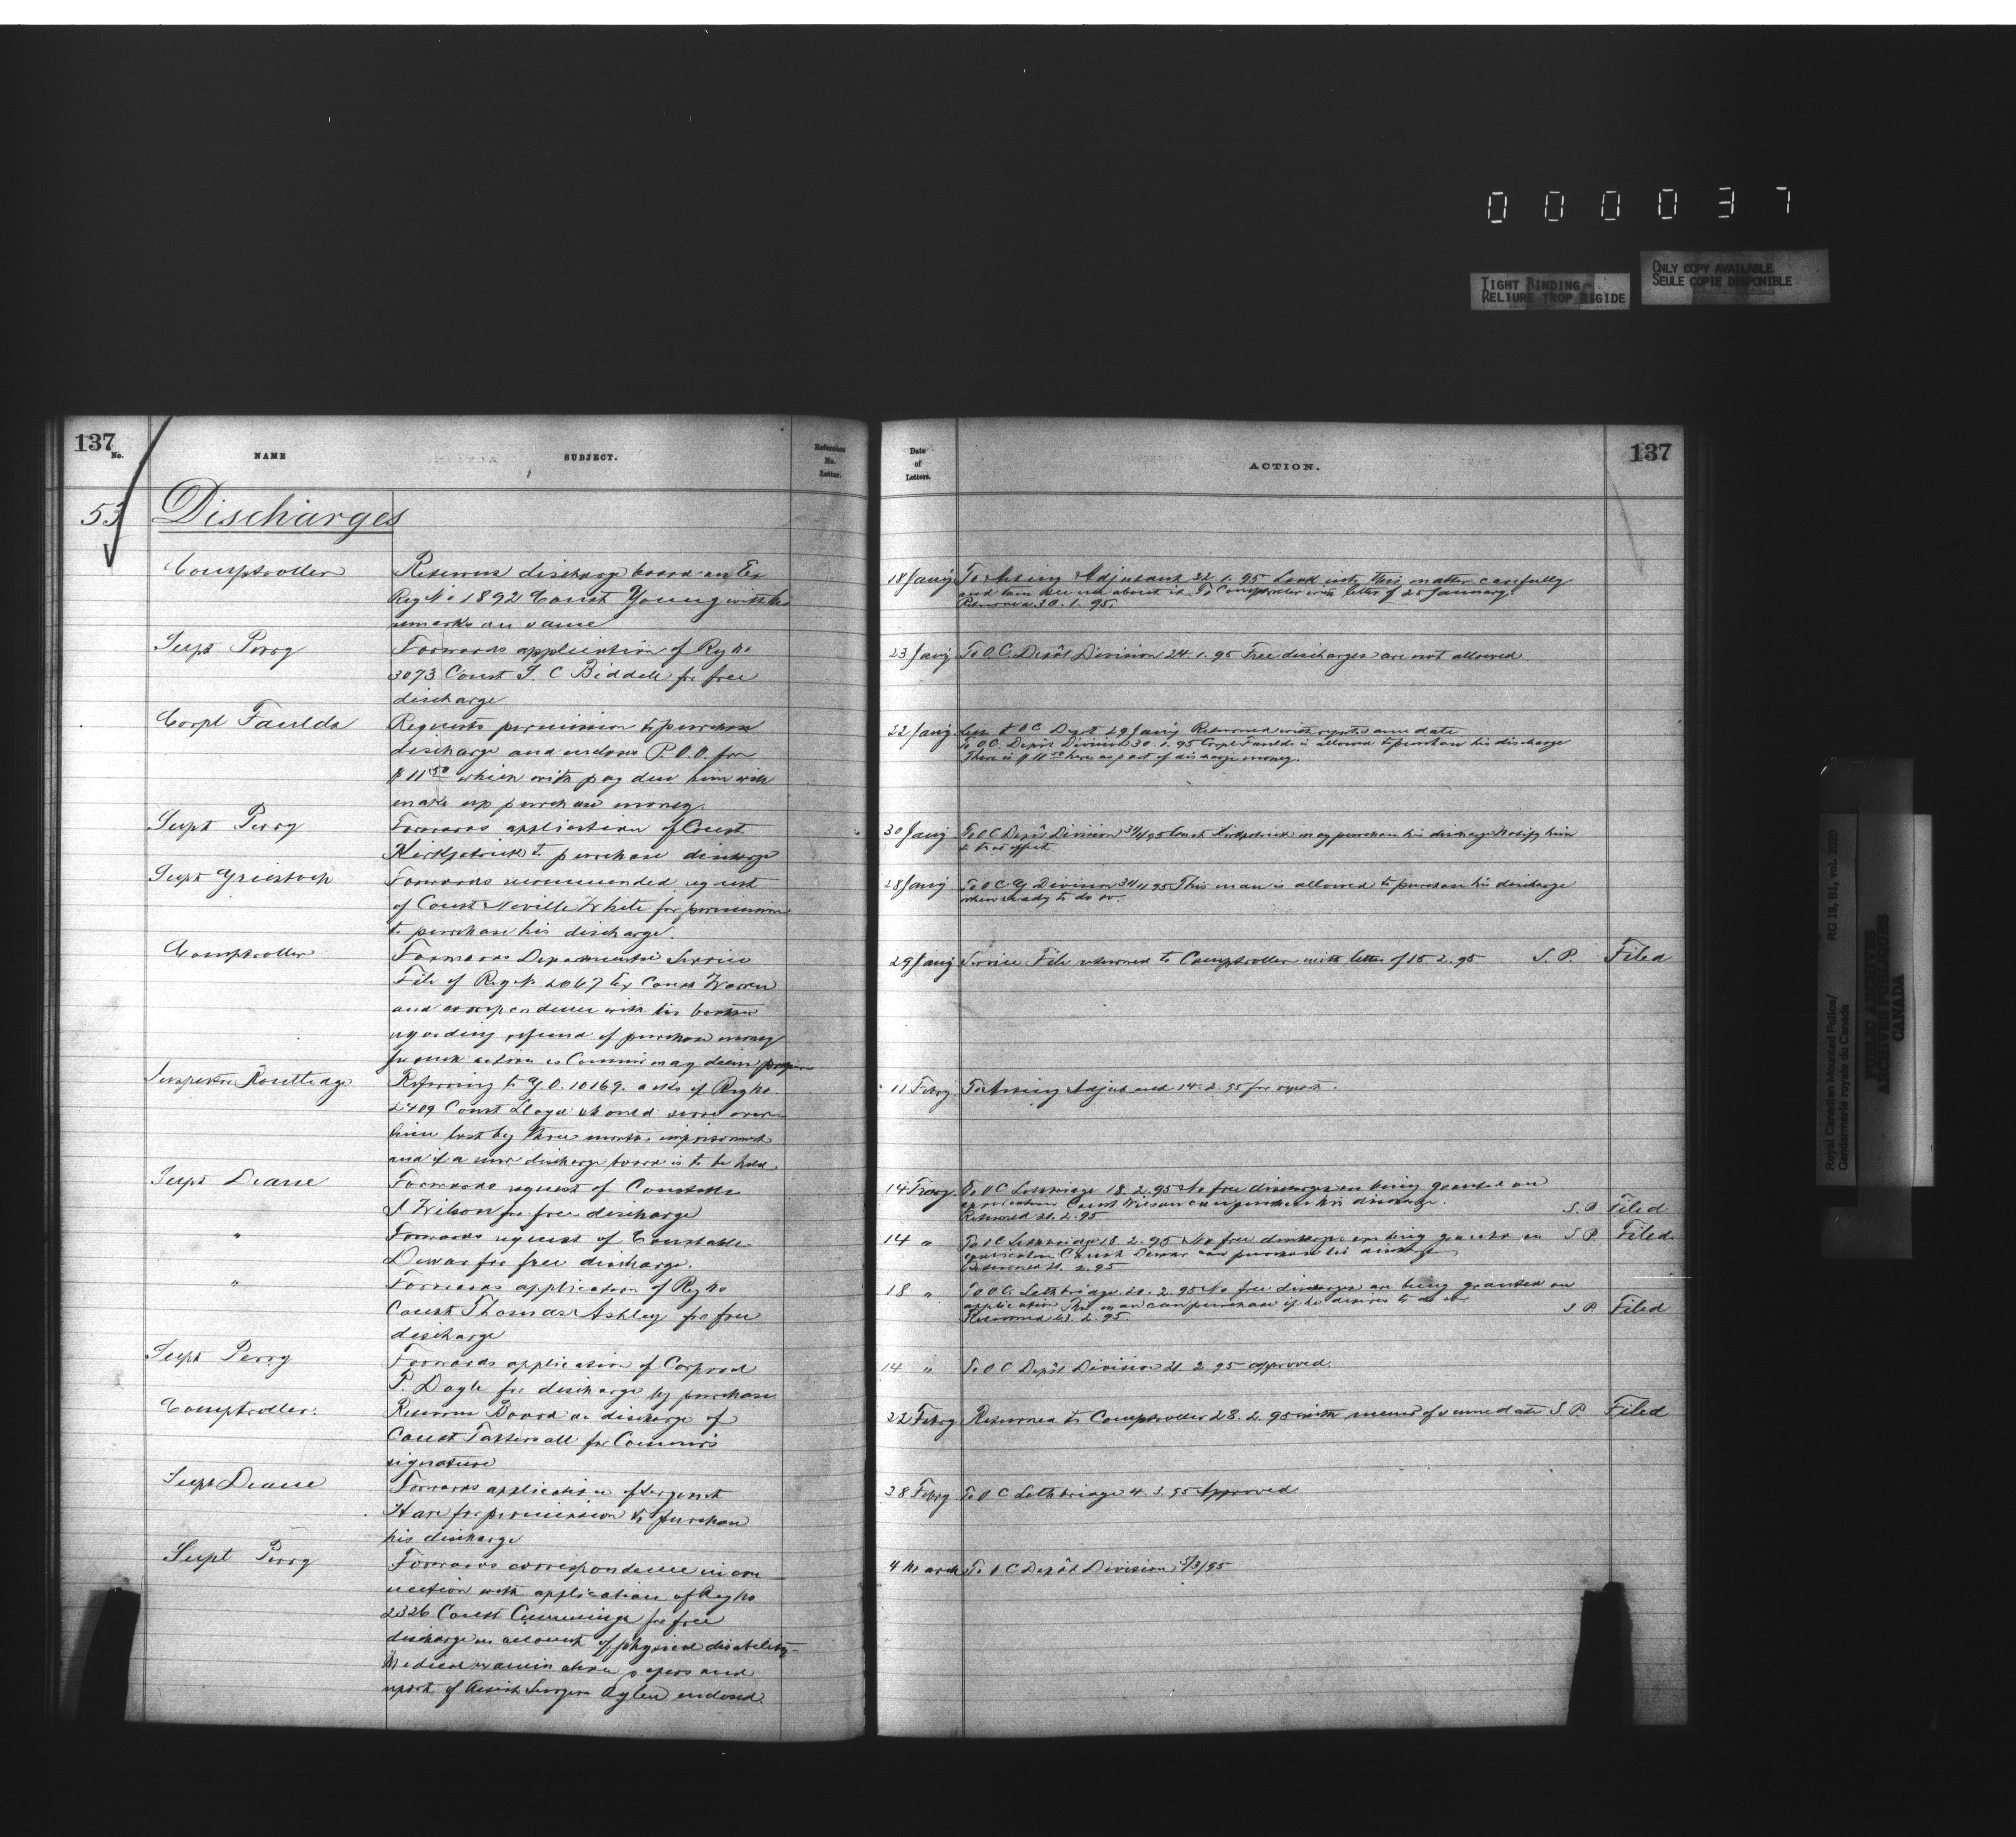 0 0 0 0 3 7
TIGHT BINDING
RELIURE TROP RIGIDE
ONLY COPY AVAILABLE
SEULE COPIE DISPONIBLE
137
No.
NAME
SUBJECT.
Reference
No.
Letter.
Date
of
Letters.
ACTION.
137
53 Discharges
Comptroller
Returns discharge board on Ex
Reg No 1892 Const Young with his
remarks on same
18 Jany To Acting Adjutant 22.1.95 Look into this matter carefully
and then see me about it. To Comptroller with letter of 25 January.
Returned 30.1.95.
Supt Perry
Forwards application of Reg No
3073 Const T. C Biddell for free
discharge
23 Jany To O.C. Depôt Division 24.1.95 Free discharges are not allowed
Corpl Faulds
Requests permission to purchase
discharge and encloses P.O.O. for
$11 50 which with pay due him will
make up purchase money.
22 Jany O C Depot 29 Jany Returned with report same date
To O.C. Depôt Division 30.1.95 Corpl Faulds is allowed to purchase his discharge
There is $11 50 here as part of discharge money.
Supt Perry
Forwards application of Const
Kirkpatrick to purchase discharge
30 Jany To O C Depôt Division Const Kirkpatrick may purchase his discharge Notify him
to that effect
Supt Griesbach
Forwards recommended request
of Const Neville White for permission
to purchase his discharge.
28 Jany To O C G Division This man is allowed to purchase his discharge
when ready to do so.
Comptroller
Forwards Departmental Service
File of Reg No 2067 Ex Const Warren
and correspondence with his brother
regarding refund of purchase money
for such action as Commr may deem proper
29 Jany Service File returned to Comptroller with letter of 15.2.95 S.P. Filed
Inspector Routledge
Referring to G.O. 10169. asks if Reg No.
2409 Const Lloyd should serve over
time lost by three months imprisonment
and if a new discharge board is to be held
11 Febry To Acting Adjutant 14.2.95 for report.
Supt Deane
Forwards request of Constable
J Wilson for free discharge
14 Febry To O C Lethbridge 18.2.95 No free discharges are being granted on
application Const Wilson can purchase his discharge.
Returned 21.2.95 S.P. Filed
"
Forwards request of Constable
Dewar for free discharge.
14 " To O C Lethbridge 18.2.95 No free discharges are being granted on S P. Filed.
application Const Dewar can purchase his discharge
Returned 21.2.95
"
Forwards application of Reg No
Const Thomas Ashley for free
discharge
18 " To O.C. Lethbridge 20.2.95 No free discharges are being granted on
application This man can purchase if he desires to do so
Returned 23.2.95 S P Filed
Supt Perry
Forwards application of Corporal
P. Dagle for discharge by purchase
14 " To O C Depôt Division 21.2 95 approved.
Comptroller.
Returns Board on discharge of
Const Tattersall for Commr's
signature
22 Febry Returned to Comptroller 28.2.95 with memo of same date S.P. Filed
Supt Deane
Forwards application of Sergeant
Hare for permission to purchase
his discharge
28 Febry To O C Lethbridge 4.3.95 Approved
Supt Perry
Forwards correspondence in con
nection with application of Reg No
2326 Const Cummings for free
discharge on account of physical disability
Medical examination papers and
report of Assist Surgeon Aylen enclosed.
4 March To O C Depôt Division 5/3/95
Royal Canadian Mounted Police/
Gendarmerie royale du Canada
RG 18, B1, vol. 2020
PUBLIC ARCHIVES
ARCHIVES PUBLIQUES
CANADA